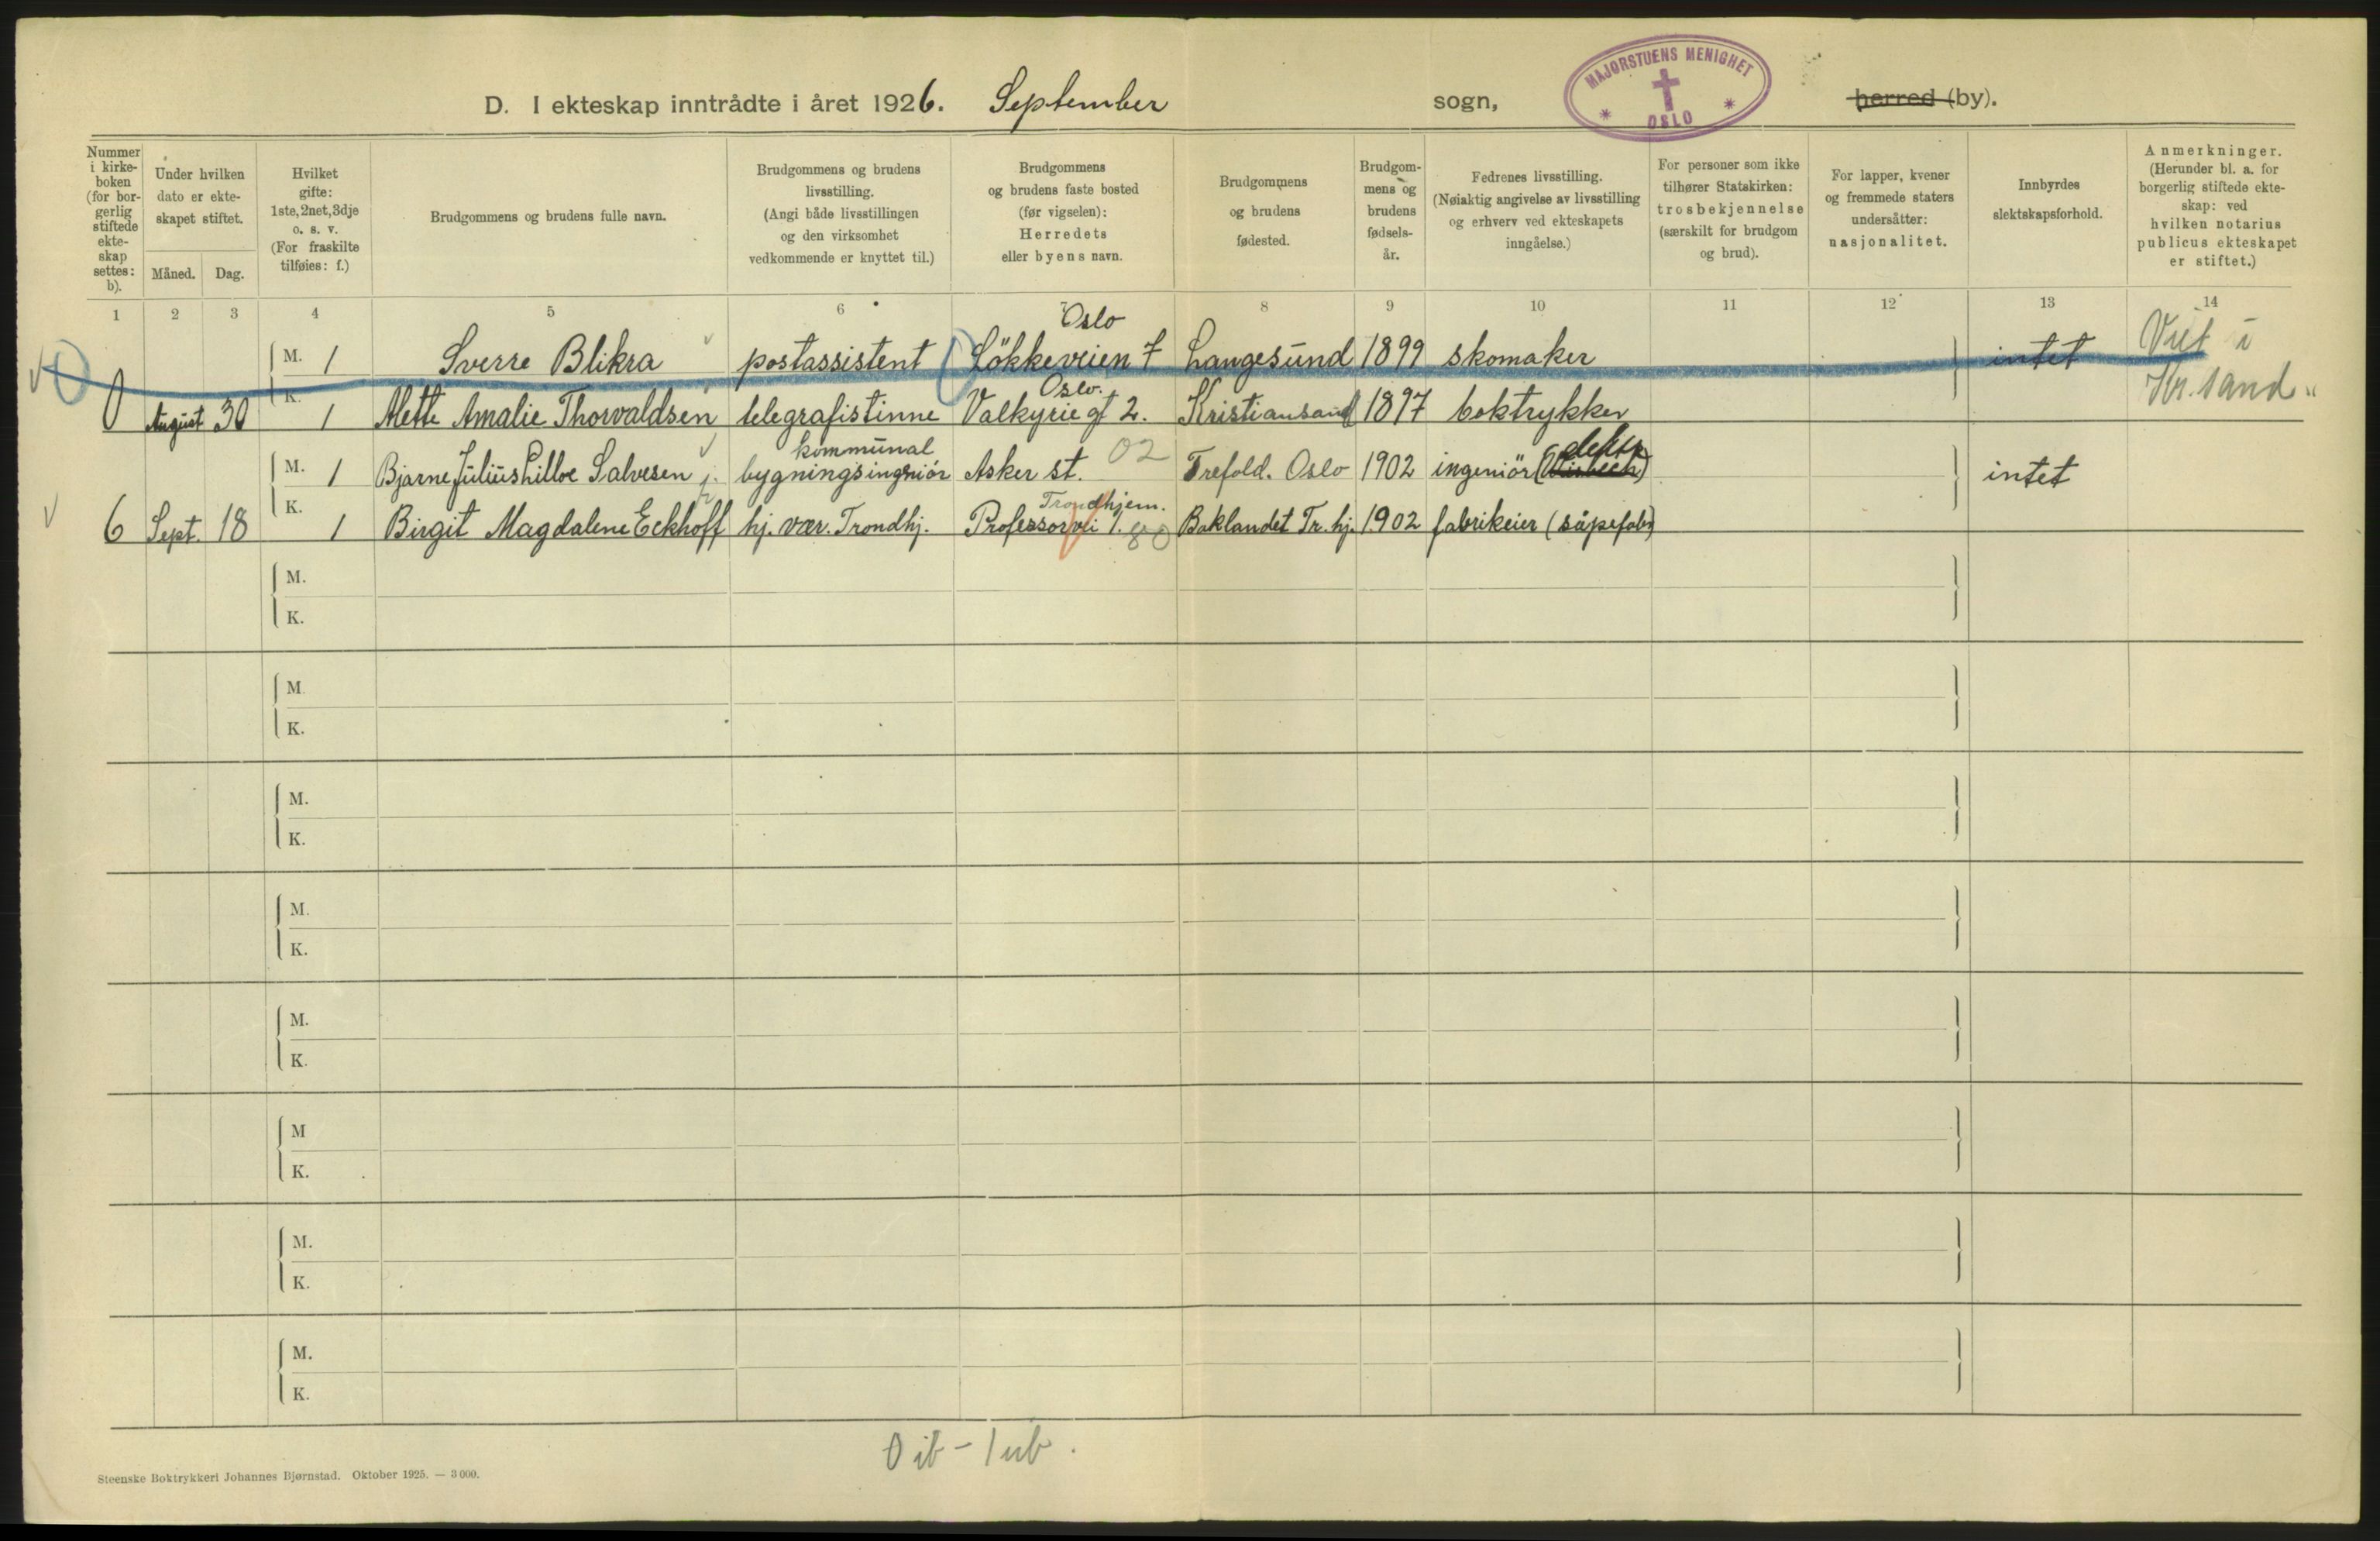 D. I ekteskap inntrådte i året 1926. September sogn, MAJORSTUENS MENIGHET * OSLO * herred (by).
Nummer i kirke-boken (for bor-gerlig stiftede ekte-skap settes: b).
Under hvilken dato er ekte-skapet stiftet.
Måned. Dag.
Hvilket gifte: 1ste, 2net, 3dje o. s. v. (For fraskilte tilføies: f.)
Brudgommens og brudens fulle navn.
Brudgommens og brudens livsstilling. (Angi både livsstillingen og den virksomhet vedkommende er knyttet til.)
Brudgommens og brudens faste bosted (før vigselen): Herredets eller byens navn.
Brudgommens og brudens fødested.
Brudgom-mens og brudens fødsels-år.
Fedrenes livsstilling. (Nøiaktig angivelse av livsstilling og erhverv ved ekteskapets inngåelse.)
For personer som ikke tilhører Statskirken: trosbekjennelse (særskilt for brudgom og brud).
For lapper, kvener og fremmede staters undersåtter: nasjonalitet.
Innbyrdes slektskapsforhold.
Anmerkninger. (Herunder bl. a. for borgerlig stiftede ekte-skap: ved hvilken notarius publicus ekteskapet er stiftet.)
1 2 3 4 5 6 7 8 9 10 11 12 13 14
Oslo
M. 1 Sverre Blikra postassistent Lökkeveien 7 Langesund 1899 skomaker intet Viet i
Oslo. Kr.sand
0 August 30 K. 1 Mette Amalie Thorvaldsen telegrafistinne Valkyrie gt 2. Kristiansand 1897 boktrykker
kommunal 02 elektr
M. 1 Bjarne Julius Lilloe Salvesen j. bygningsingeniör Asker st. Trefold. Oslo 1902 ingeniör intet
Trondhjem.
6 Sept. 18 K. 1 Birgit Magdalene Eckhoff hj. vær. Trondhj. Professorvei 1. 80 Baklandet Tr.hj. 1902 fabrikeier (såpefabr)
M.
K.
M.
K.
M.
K.
M.
K.
M.
K.
M
K.
M.
K.
M.
K.
0 ib - 1 ub.
Steenske Boktrykkeri Johannes Bjørnstad. Oktober 1925. — 3 000.